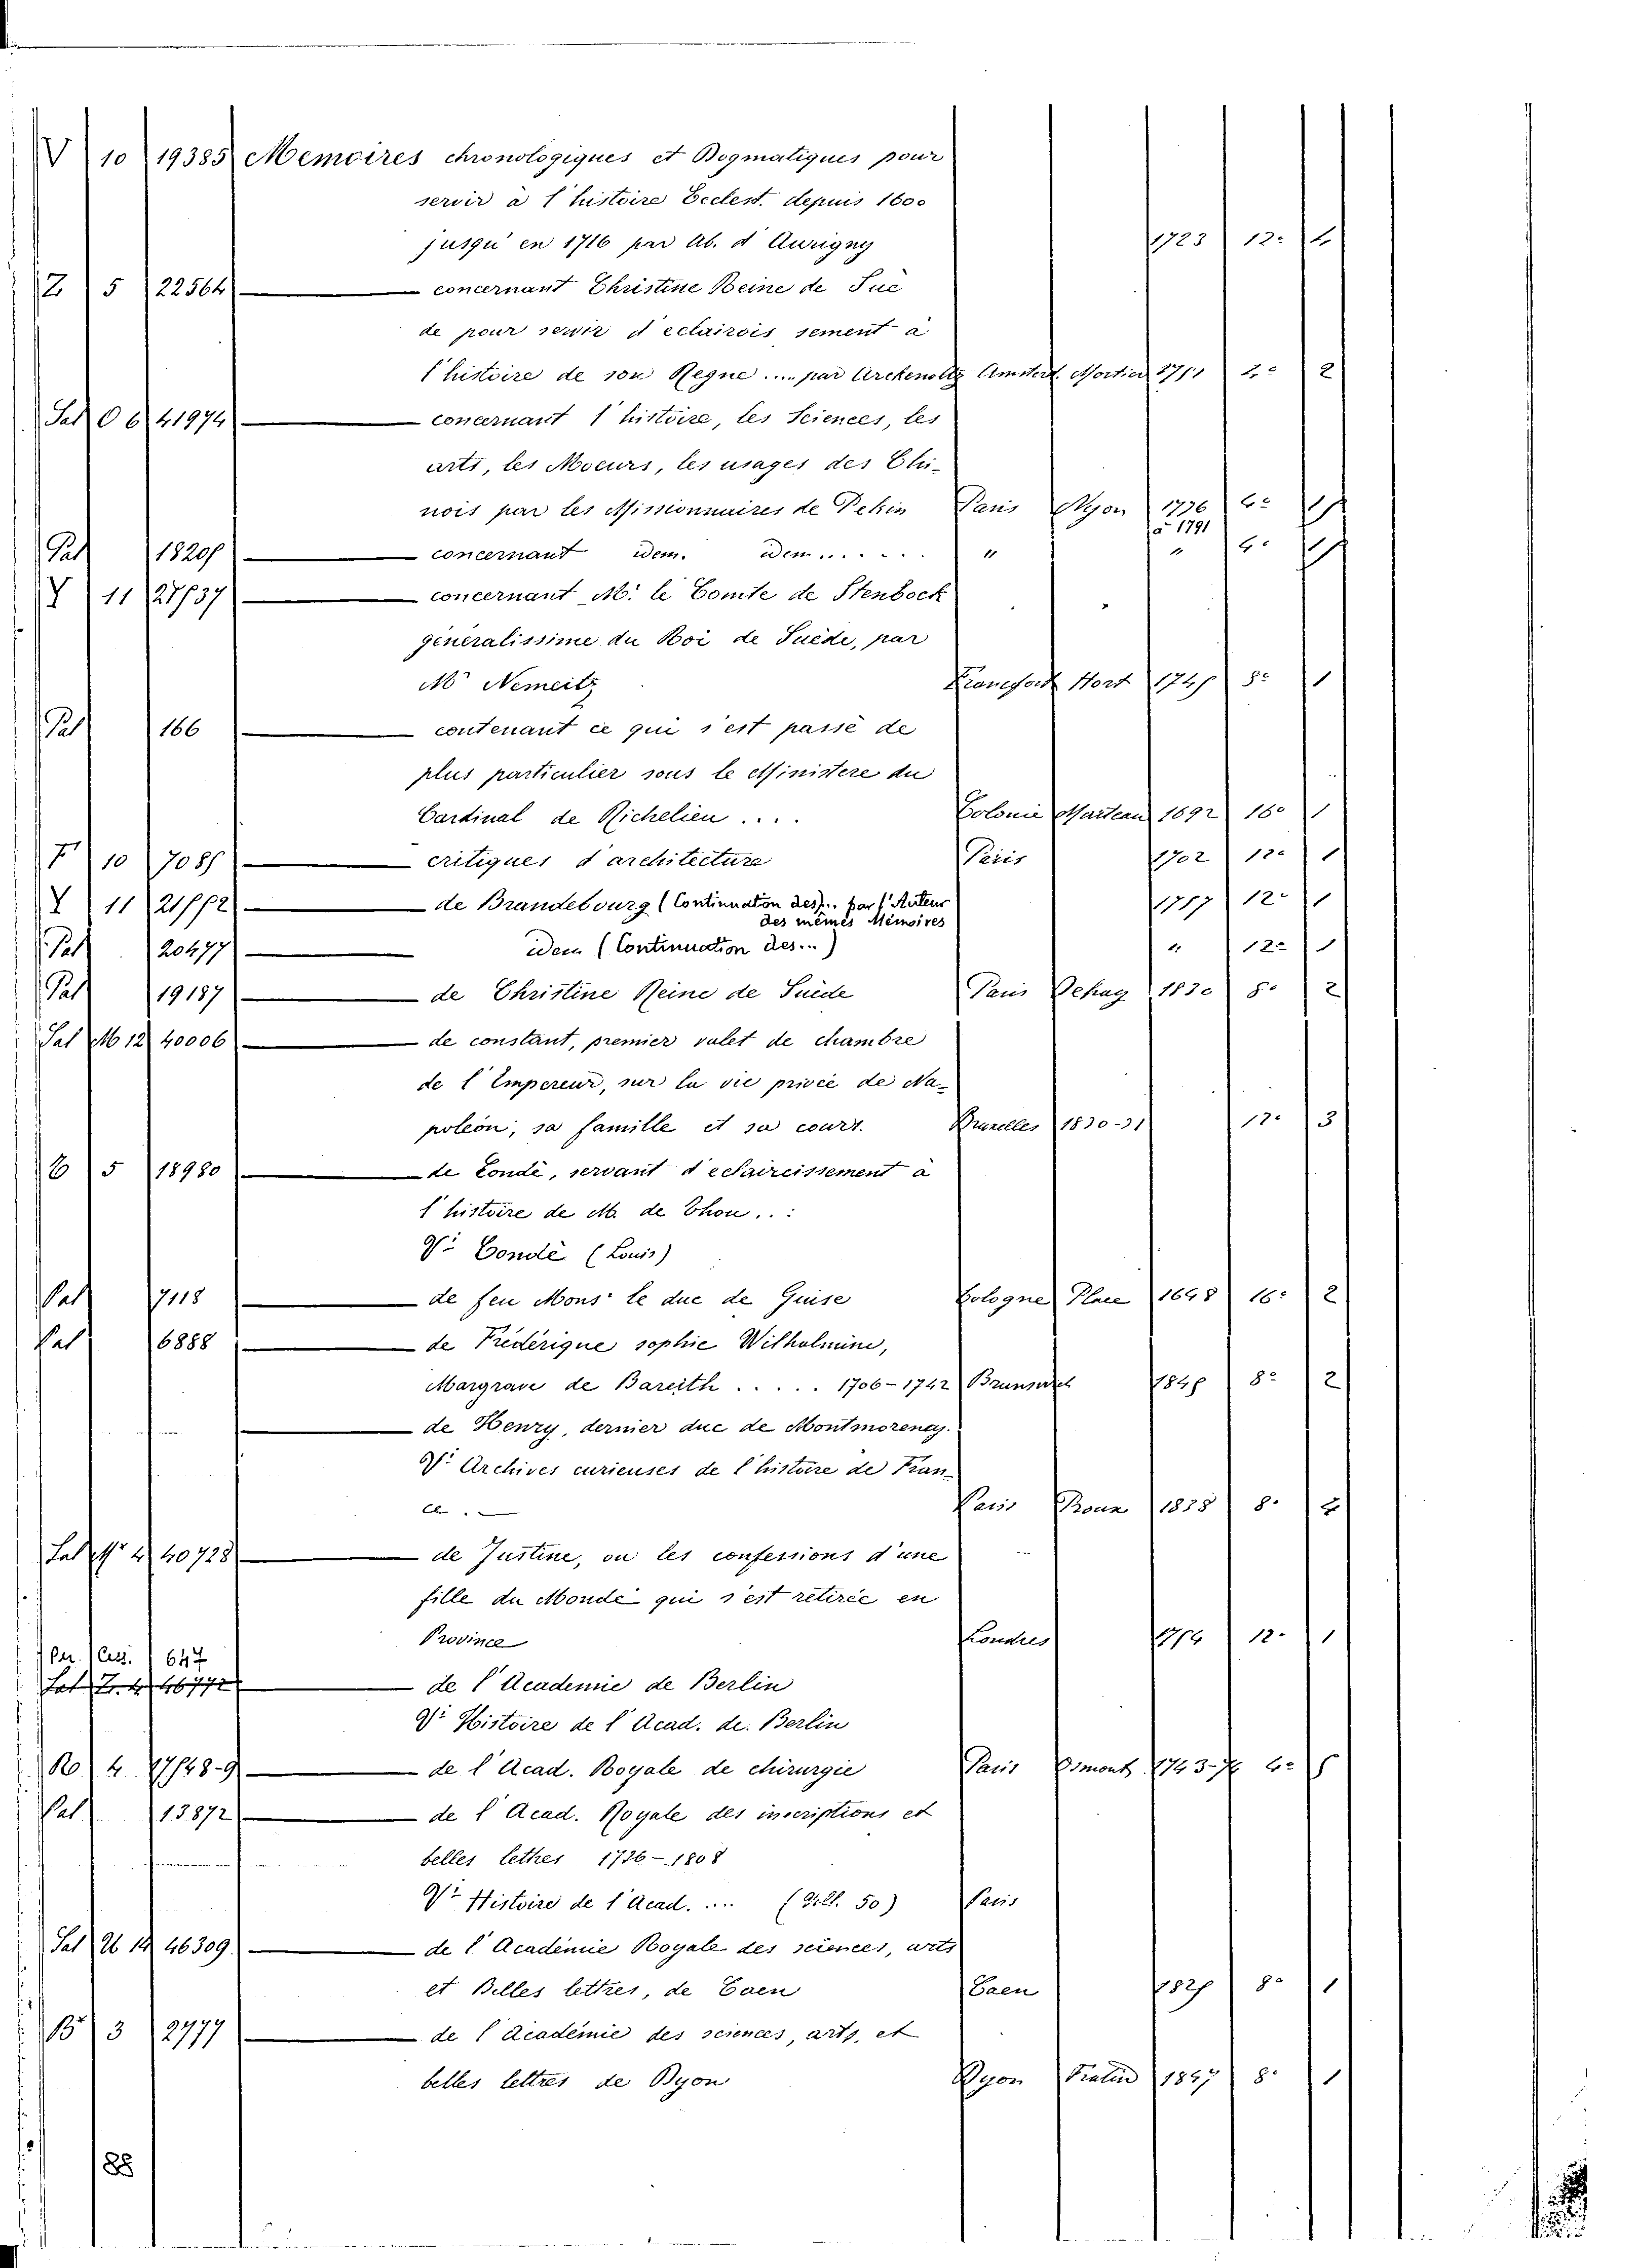 V 10 19385 Memoires chronologiques et Dogmatiques pour
servir à l'histoire Ecclest. depuis 1600
jusqu'en 1716 par Ab. d'Aurigny 1723 12º 4
Z 5 22564 — concernant Christine Reine de Sué
de pour servir d'eclairois sement a
l'histoire de son Regne .... par Arckenoltz Amsterd. Mortier 1751 4º 2
Sal O 6 41974 — concernant l'histoire, les Sciences, les
arts, les Moeurs, les usages des Chi-
nois par les Missionnaires de Pekin Paris Nyon 1776 4º
à 1791
Pal 1820 — concernant idem. idem ...... " " 4º
Y 11 21737 — concernant M. le Comte de Stenbock
généralissime du Roi de Suède, par
Mr Nemeitz Francfort Hort 1745 8º 1
Pal 166 — contenant ce qui s'est passé de
plus particulier sous le Ministere du
Cardinal de Richelieu .... Colonie Marteau 1692 16º 1
F 10 7085 — critiques d'architecture Paris 1702 12º 1
Y 11 21772 — de Brandebourg (Continuation des)... par l'Auteur
des mêmes Mémoires 1757 12º 1
Pal 20477 — idem (Continuation des...) " 12º 1
Pal 19187 — de Christine Reine de Suède Paris Dehay 1830 8º 2
Sal M 12 40006 — de constant, premier valet de chambre
de l'Empereur, sur la vie privée de Na-
poléon, sa famille et sa court. Bruxelles 1830-31 12º 3
6 5 18980 — de Condé, servant d'eclaircissement à
l'histoire de M. de Thou...
Vº Condé (Louis)
Pal 7118 — de feu Monsr le duc de Guise Cologne Place 1648 16º 2
Pal 6888 — de Fréderique sophie Wilhelmine,
Margrave de Bareith ..... 1706-1742 Brunswich 1845 8º 2
— de Henry, dernier duc de Montmorency.
Vº Archives curieuses de l'histoire de Fran-
ce . — Paris 1838 8º
40728 — de Justine, ou les confessions d'une
fille du Monde qui s'est retirée en
Province Londres 1774 12º 1
Per. Cass. 647
Sal Z. 4 46772 — de l'Academie de Berlin
Vº Histoire de l'Acad. de Berlin
R 4 17148-9 — de l'Acad. Royale de chirurgie Paris Osmont 1743-7 4º
Pal 13872 — de l'Acad. Royale des inscriptions et
belles lettres 1726-1808
Vº Histoire de l'Acad. .... (Vol. 50) Paris
Sal U 14 46309 — de l'Académie Royale des sciences, arts
et Belles lettres, de Caen Caen 1825 8º 1
B 3 2777 — de l'Académie des sciences, arts, et
belles lettres de Dyon Dyon 1847 8º 1
88